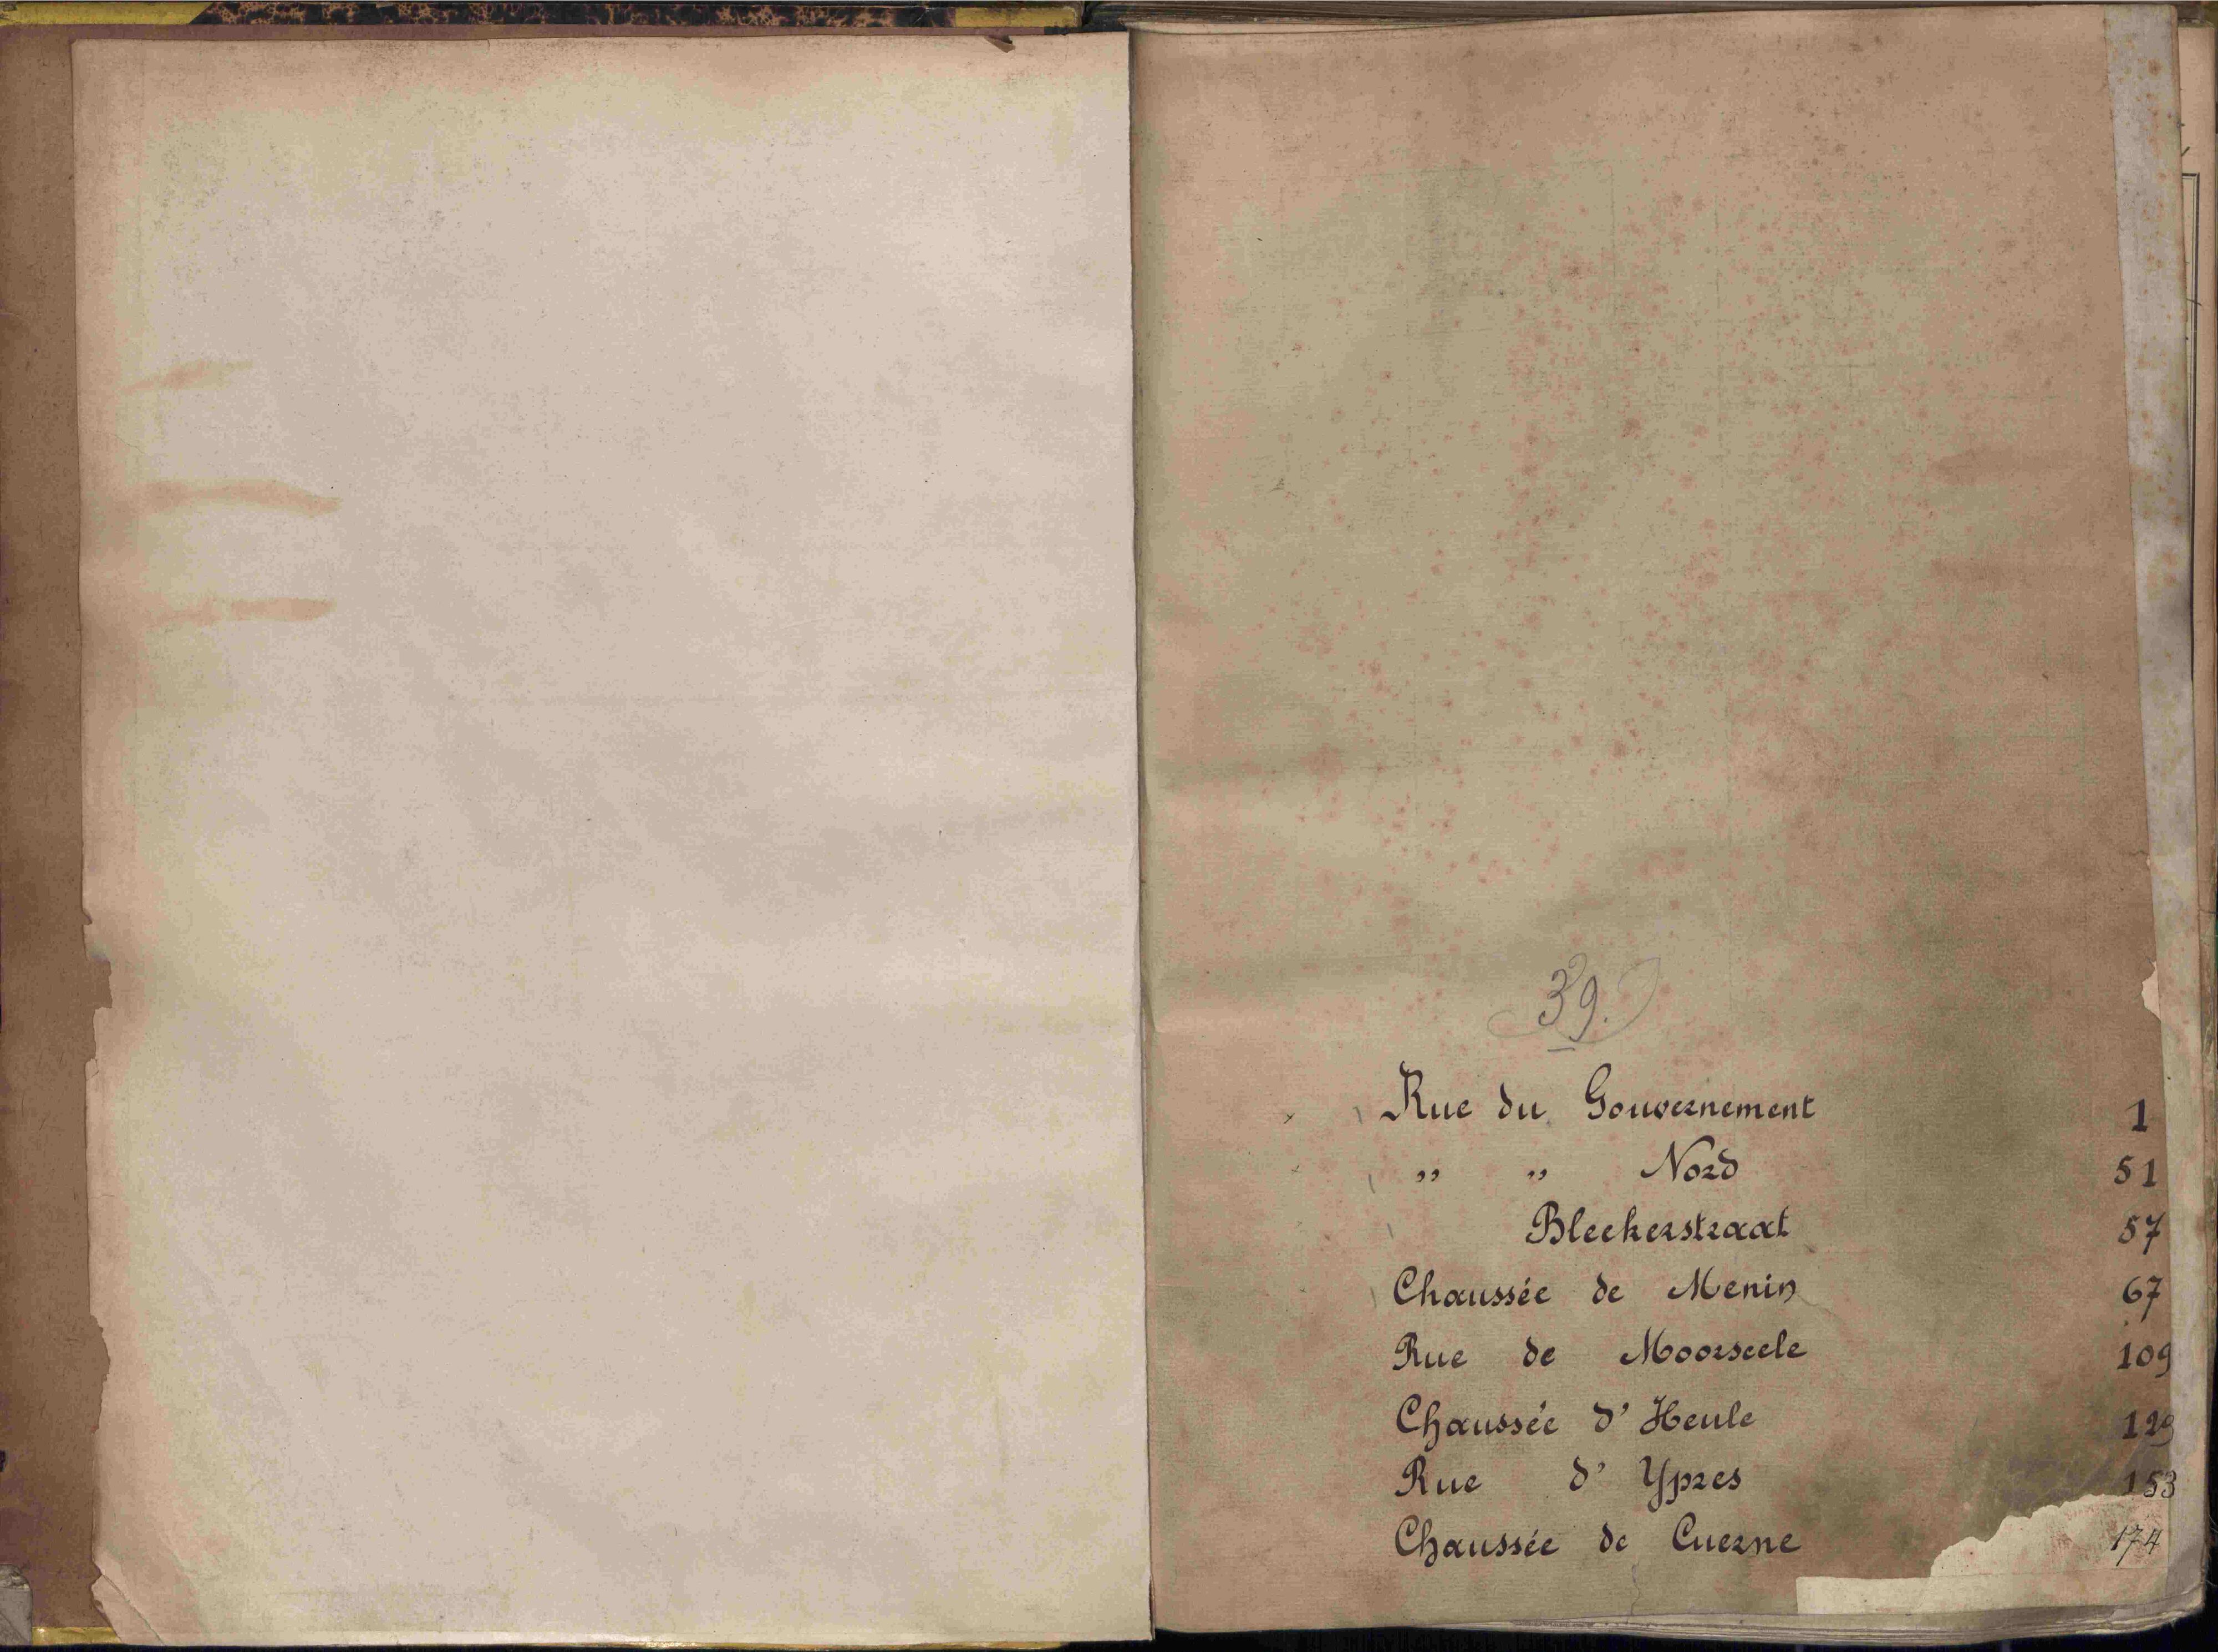 39.
Rue du Gouvernement 1
" " Nord 51
Bleekerstraat 57
Chaussée de Menin 67
Rue de Moorseele 109
Chaussée d' Heule 129
Rue d' Ypres 153
Chaussée de Cuerne 174